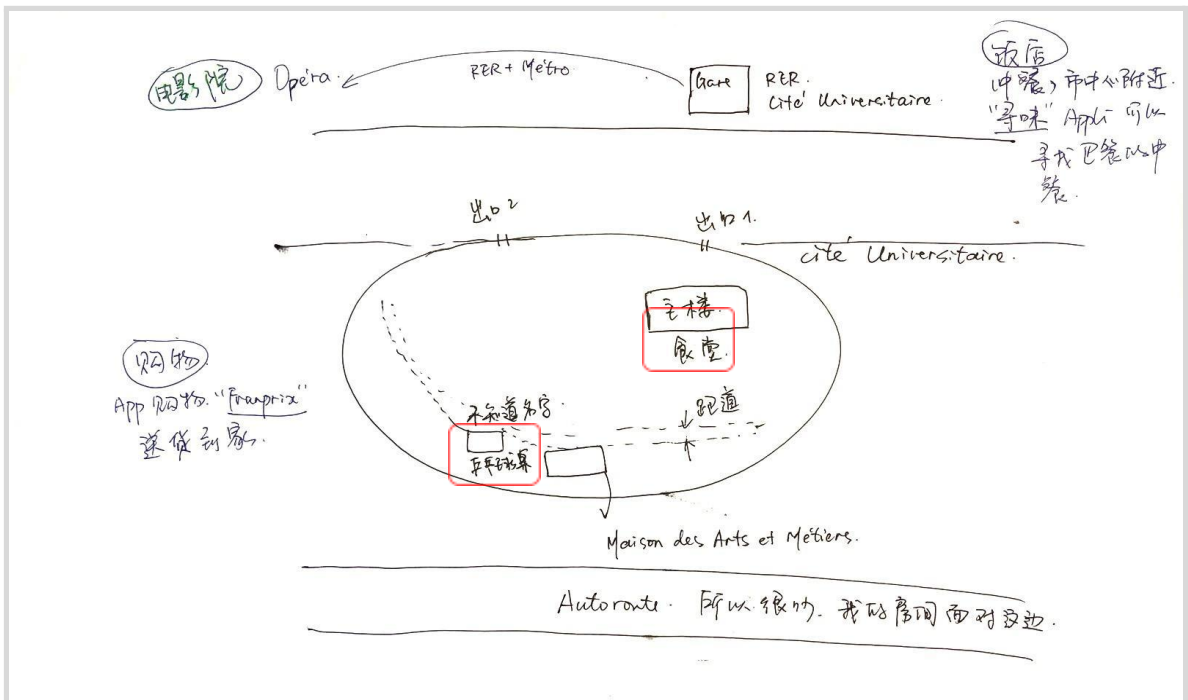 电影院 Opéra.
RER + Métro
Gare
RER.
Cité Universitaire.
饭店
中餐, 市中心附近.
"寻味" Appli 可以
寻找巴黎的中
餐.
出口2
出口1.
cité Universitaire.
主楼.
食堂.
购物
App 购物. "Franprix"
送货到家.
不知道名字.
跑道
乒乓球桌
Maison des Arts et Métiers.
Autoroute. 所以很吵. 我的房间面对这边.